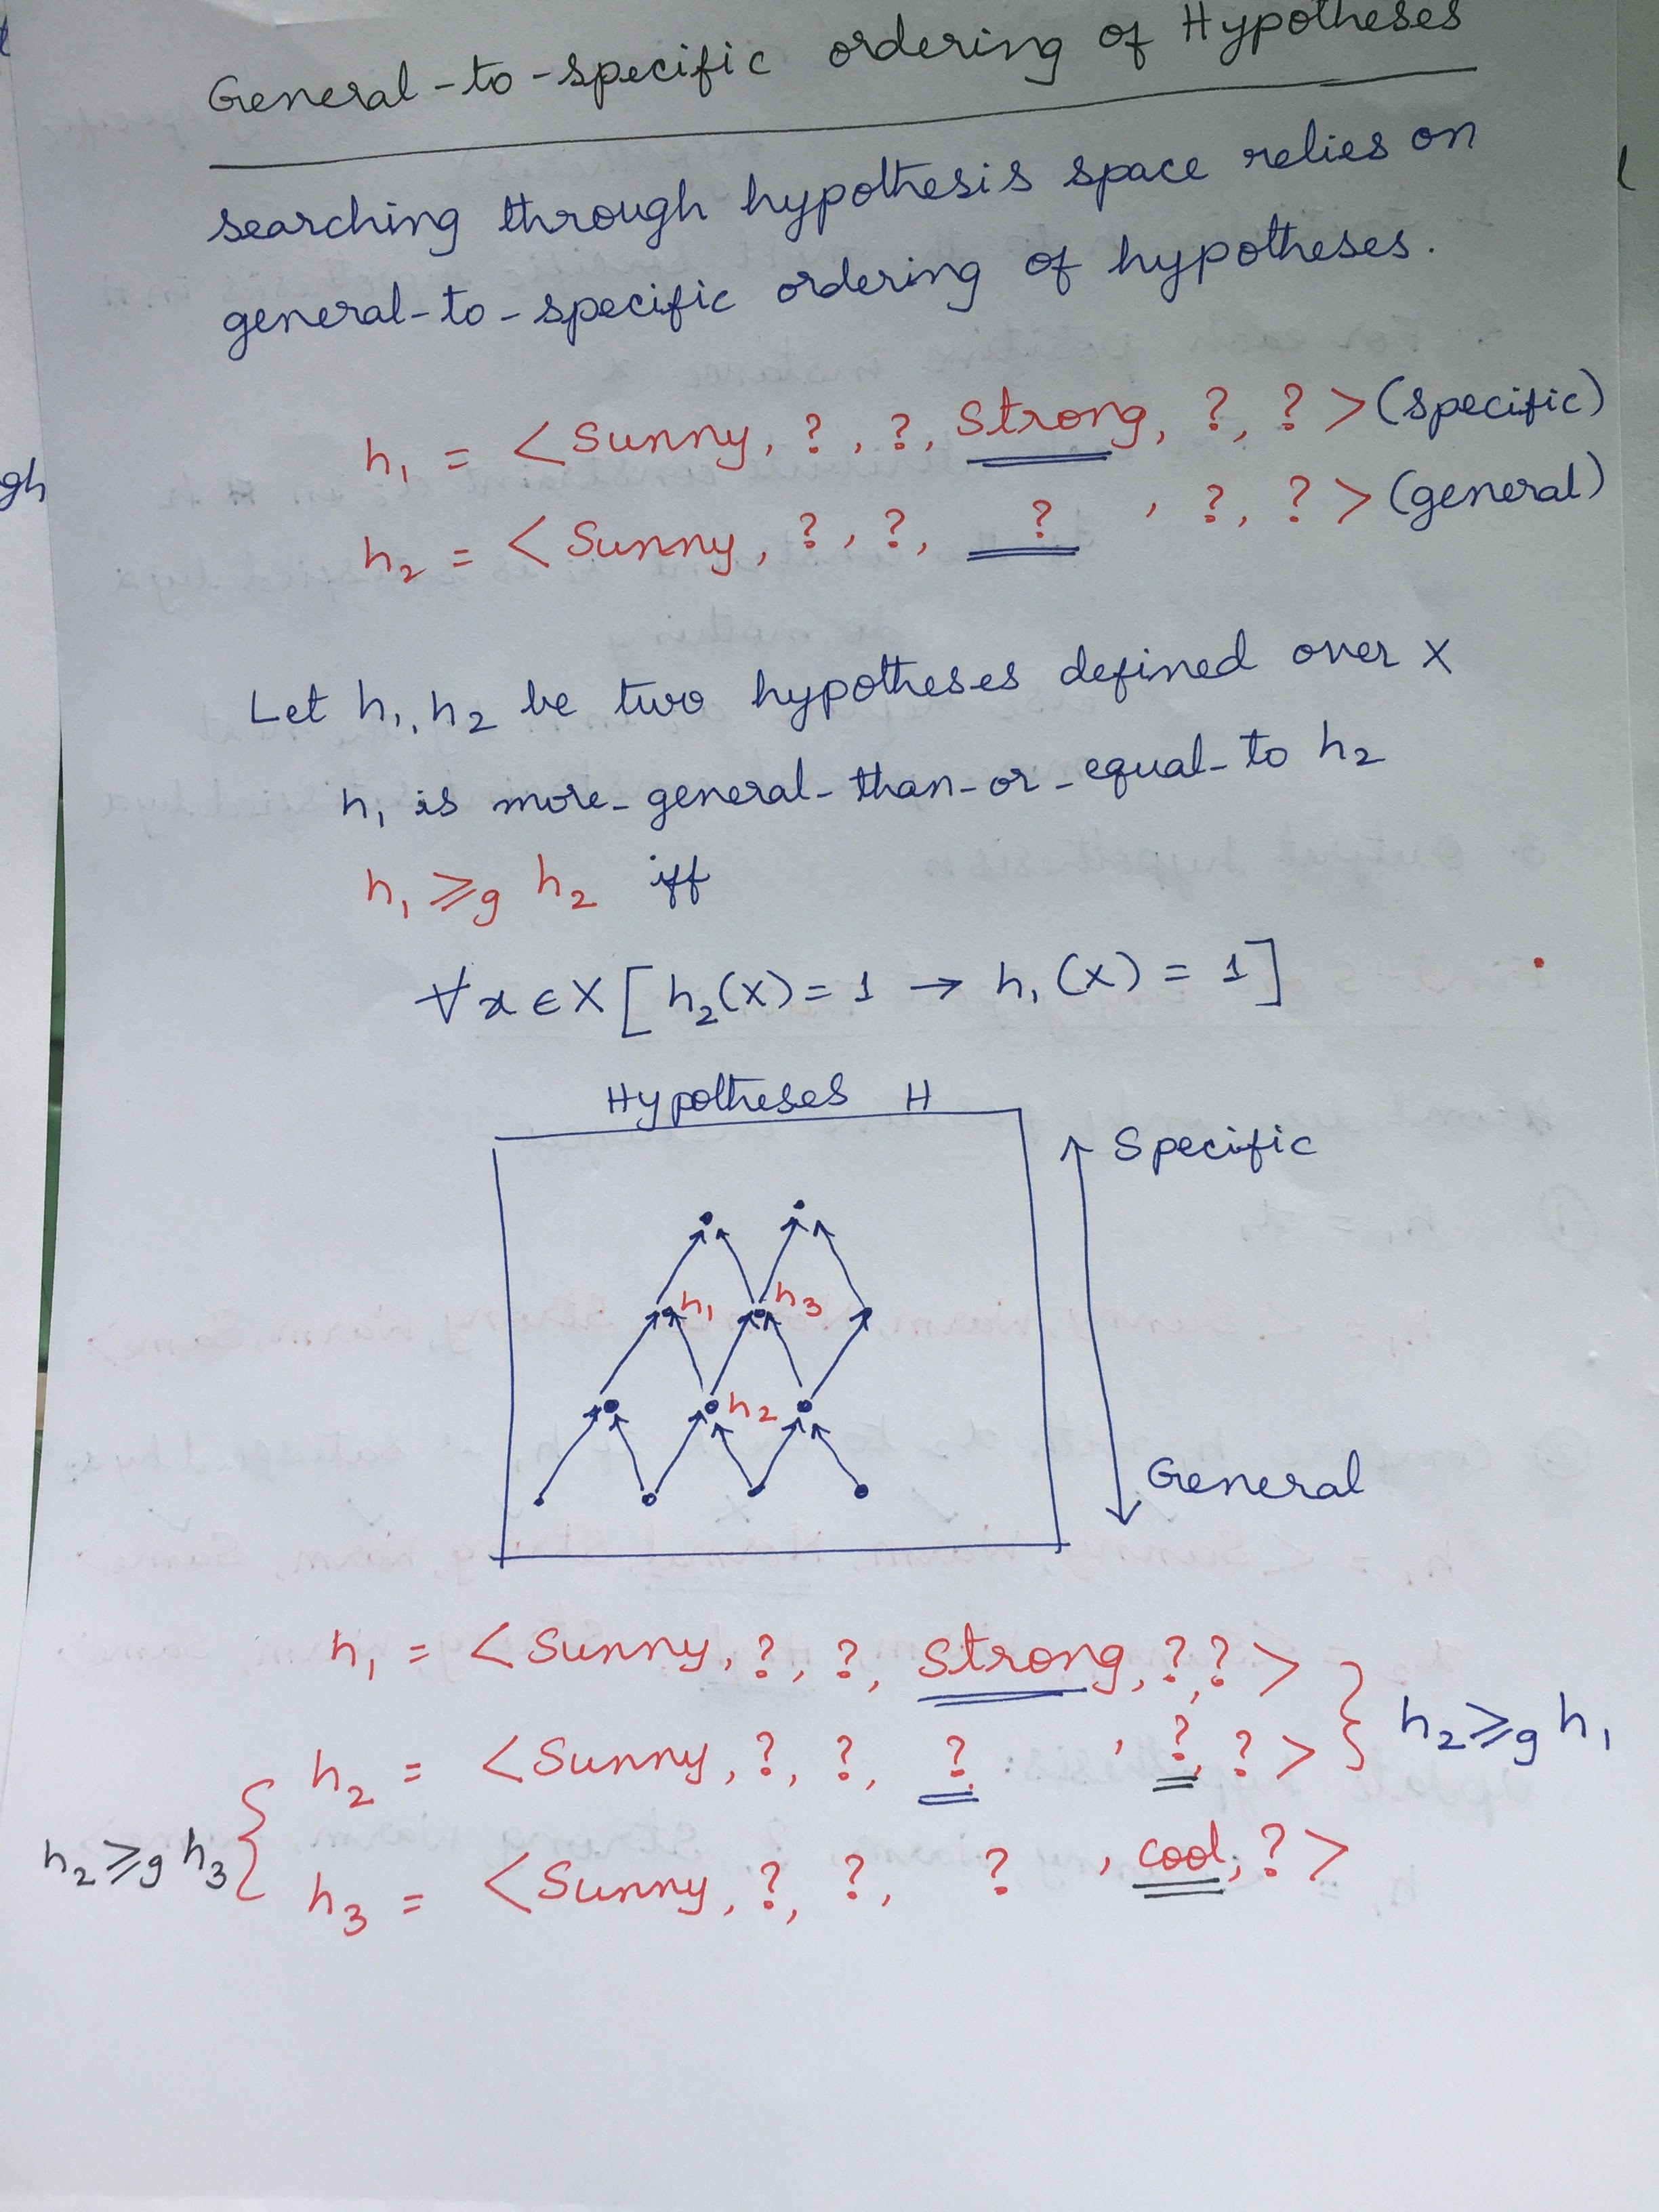 General-to-specific ordering of Hypotheses
searching through hypothesis space relies on
general-to-specific ordering of hypotheses.
h₁ = <Sunny, ?, ?, Strong, ?, ?> (specific)
gh
h₂ = <Sunny, ?, ?, ?, ?, ?> (general)
Let h₁, h₂ be two hypotheses defined over X
h₁ is more-general-than-or-equal-to h₂
h₁ ⩾g h₂ iff
∀x∈X [h₂(X)=1 → h₁(X) = 1]
Hypotheses H
Specific
h₁ h₃
h₂
General
h₁ = <Sunny, ?, ?, Strong, ?, ?>
h₂ ⩾g h₁
h₂ = <Sunny, ?, ?, ?, ?, ?>
h₂ ⩾g h₃
h₃ = <Sunny, ?, ?, ?, cool, ?>